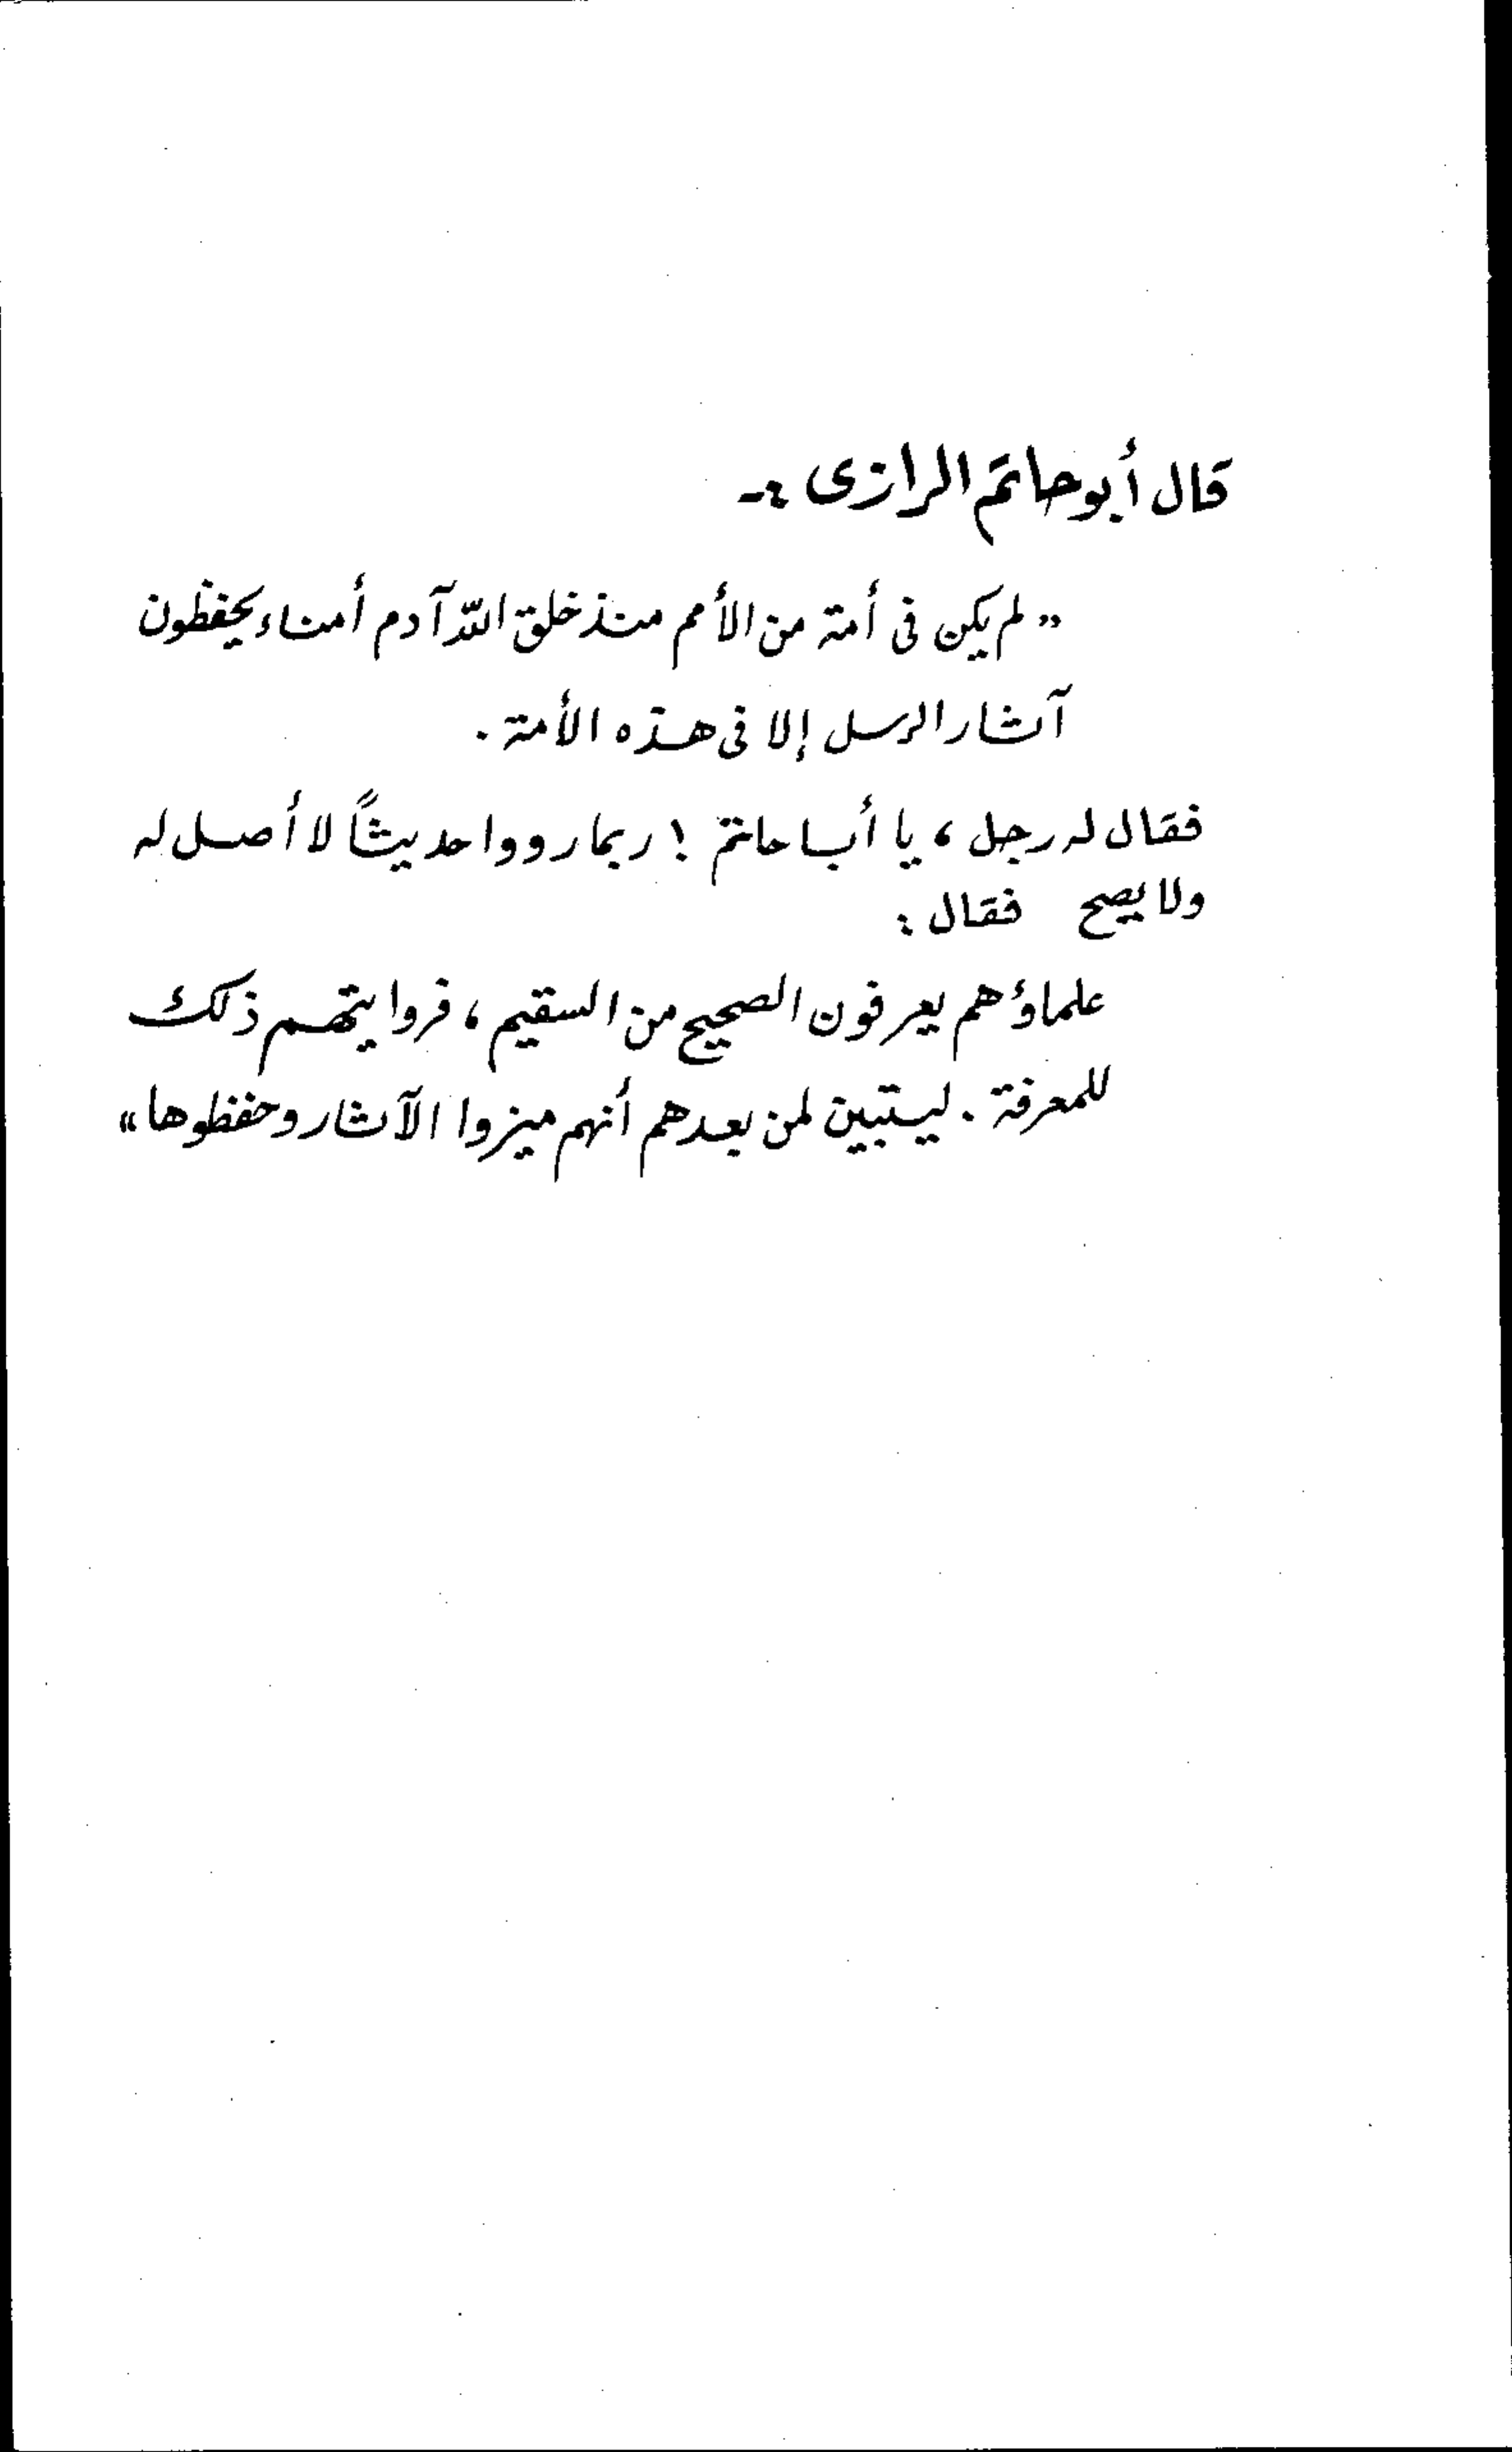 قال أبو حاتم الرازى :-
« لم يكن فى أمة من الأمم منذ خلق الله آدم أمناء يحفظون
آثار الرسل إلا فى هذه الأمة .
فقال له رجل ، يا أبا حاتم ! ربما رووا حديثاً لا أصل له
ولا يصح فقال :
علماؤهم يعرفون الصحيح من السقيم ، فروايتهم ذلك
للمعرفة . ليستبين لمن بعدهم أنهم ميزوا الآثار وحفظوها »